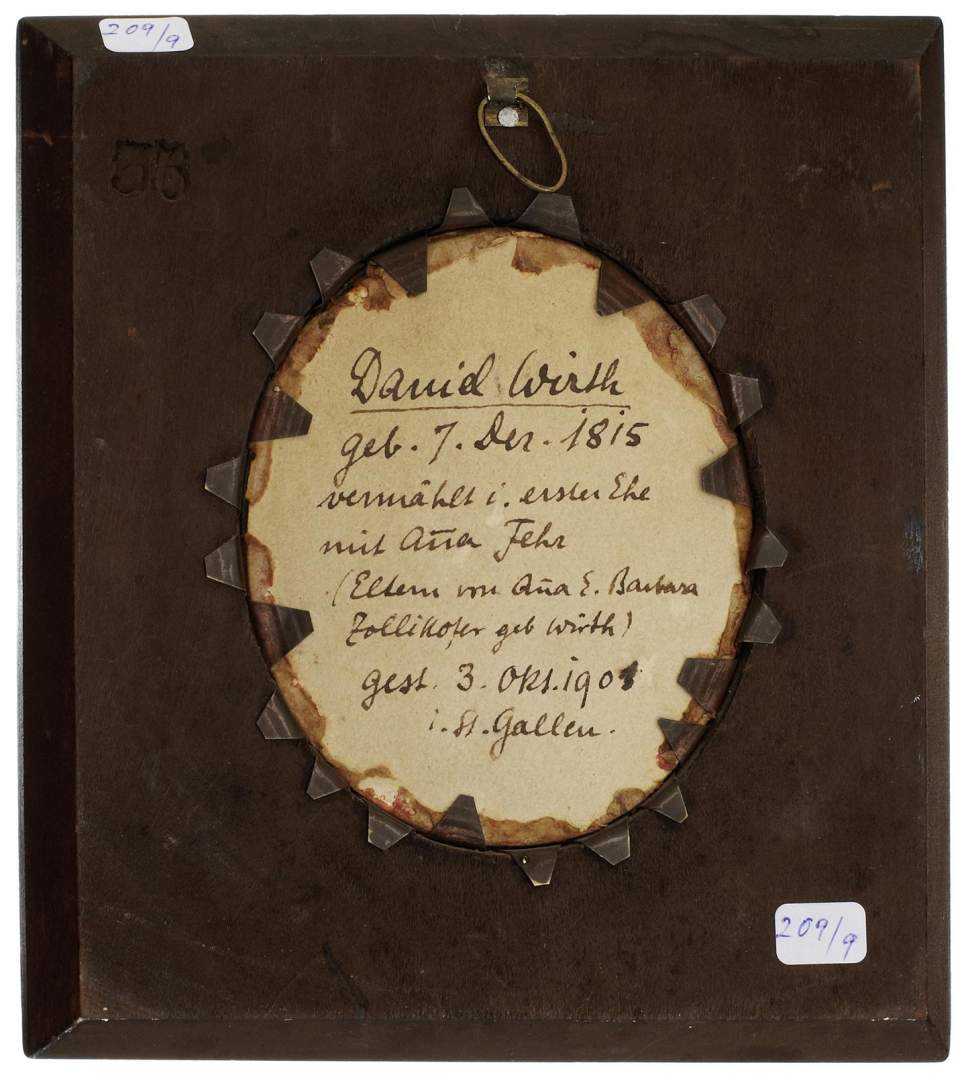 209/9
55
Daniel Wirth
geb. 7. Dez. 1815
vermählt i. erster Ehe
mit Aña Fehr
(Eltern von Aña E. Barbara
Zollikofer geb Wirth)
gest. 3. Okt. 1901
i. St. Gallen.
209/9